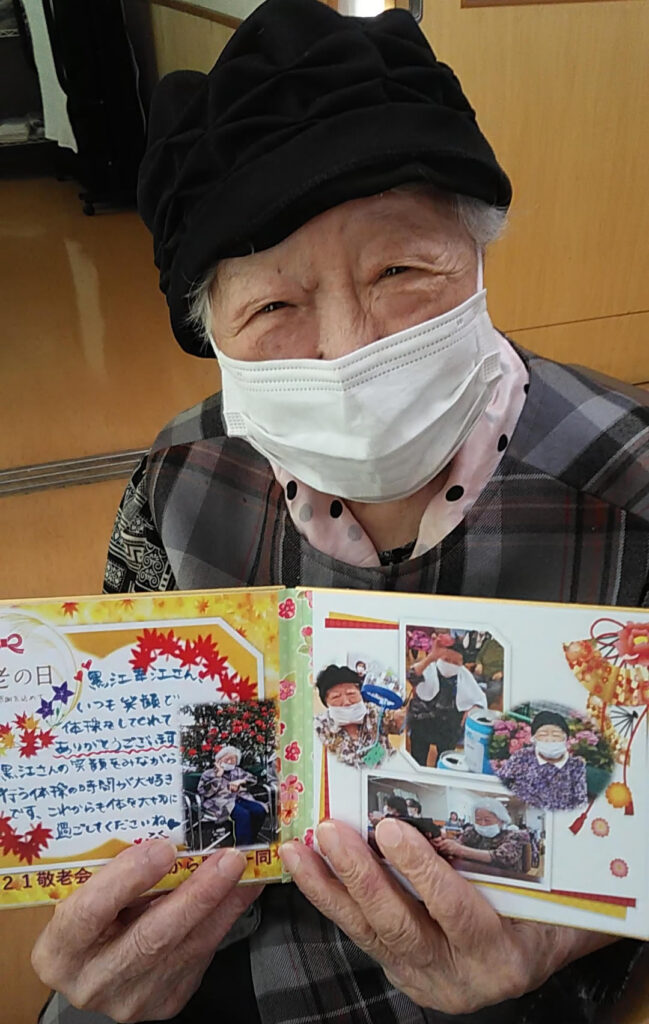 老の日
黒江幸江さん
いつも笑顔で
体操をしてくれて
ありがとうございます
黒江さんの笑顔をみながら
行う体操の時間が大好き
です。これからも体を大切に
過ごしてくださいね
21敬老会
から
一同